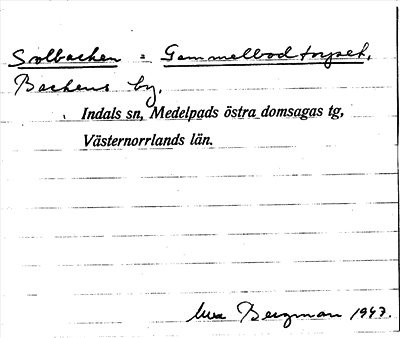 Solbacken = Gammelbodtorpet,
Backens by,
Indals sn, Medelpads östra domsagas tg,
Västernorrlands län.
Bergman 1947.